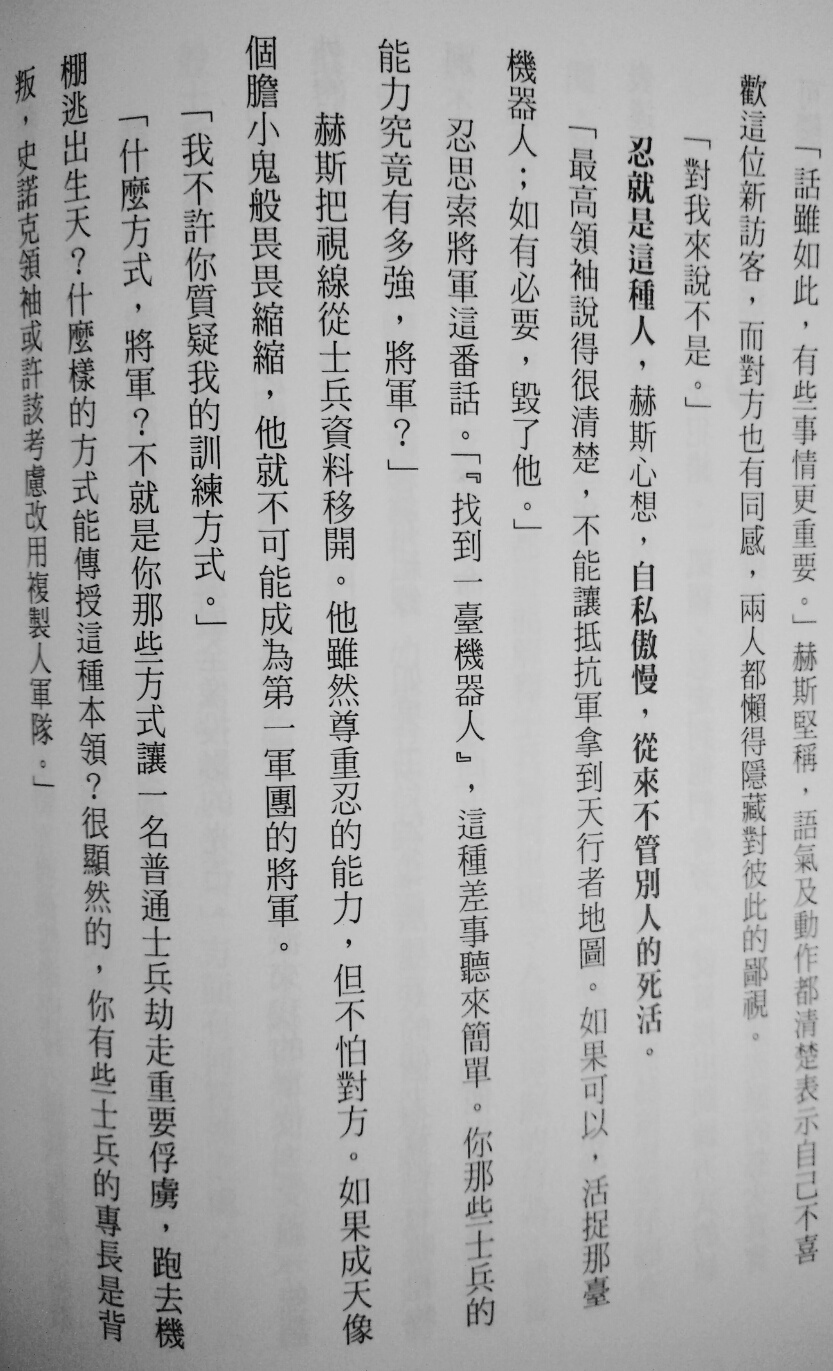 「話雖如此，有些事情更重要。」赫斯堅稱，語氣及動作都清楚表示自己不喜
歡這位新訪客，而對方也有同感，兩人都懶得隱藏對彼此的鄙視。
「對我來說不是。」
忍就是這種人，赫斯心想，自私傲慢，從來不管別人的死活。
「最高領袖說得很清楚，不能讓抵抗軍拿到天行者地圖。如果可以，活捉那臺
機器人；如有必要，毀了他。」
忍思索將軍這番話。「『找到一臺機器人』，這種差事聽來簡單。你那些士兵的
能力究竟有多強，將軍？」
赫斯把視線從士兵資料移開。他雖然尊重忍的能力，但不怕對方。如果成天像
個膽小鬼般畏畏縮縮，他就不可能成為第一軍團的將軍。
「我不許你質疑我的訓練方式。」
「什麼方式，將軍？不就是你那些方式讓一名普通士兵劫走重要俘虜，跑去機
棚逃出生天？什麼樣的方式能傳授這種本領？很顯然的，你有些士兵的專長是背
叛，史諾克領袖或許該考慮改用複製人軍隊。」